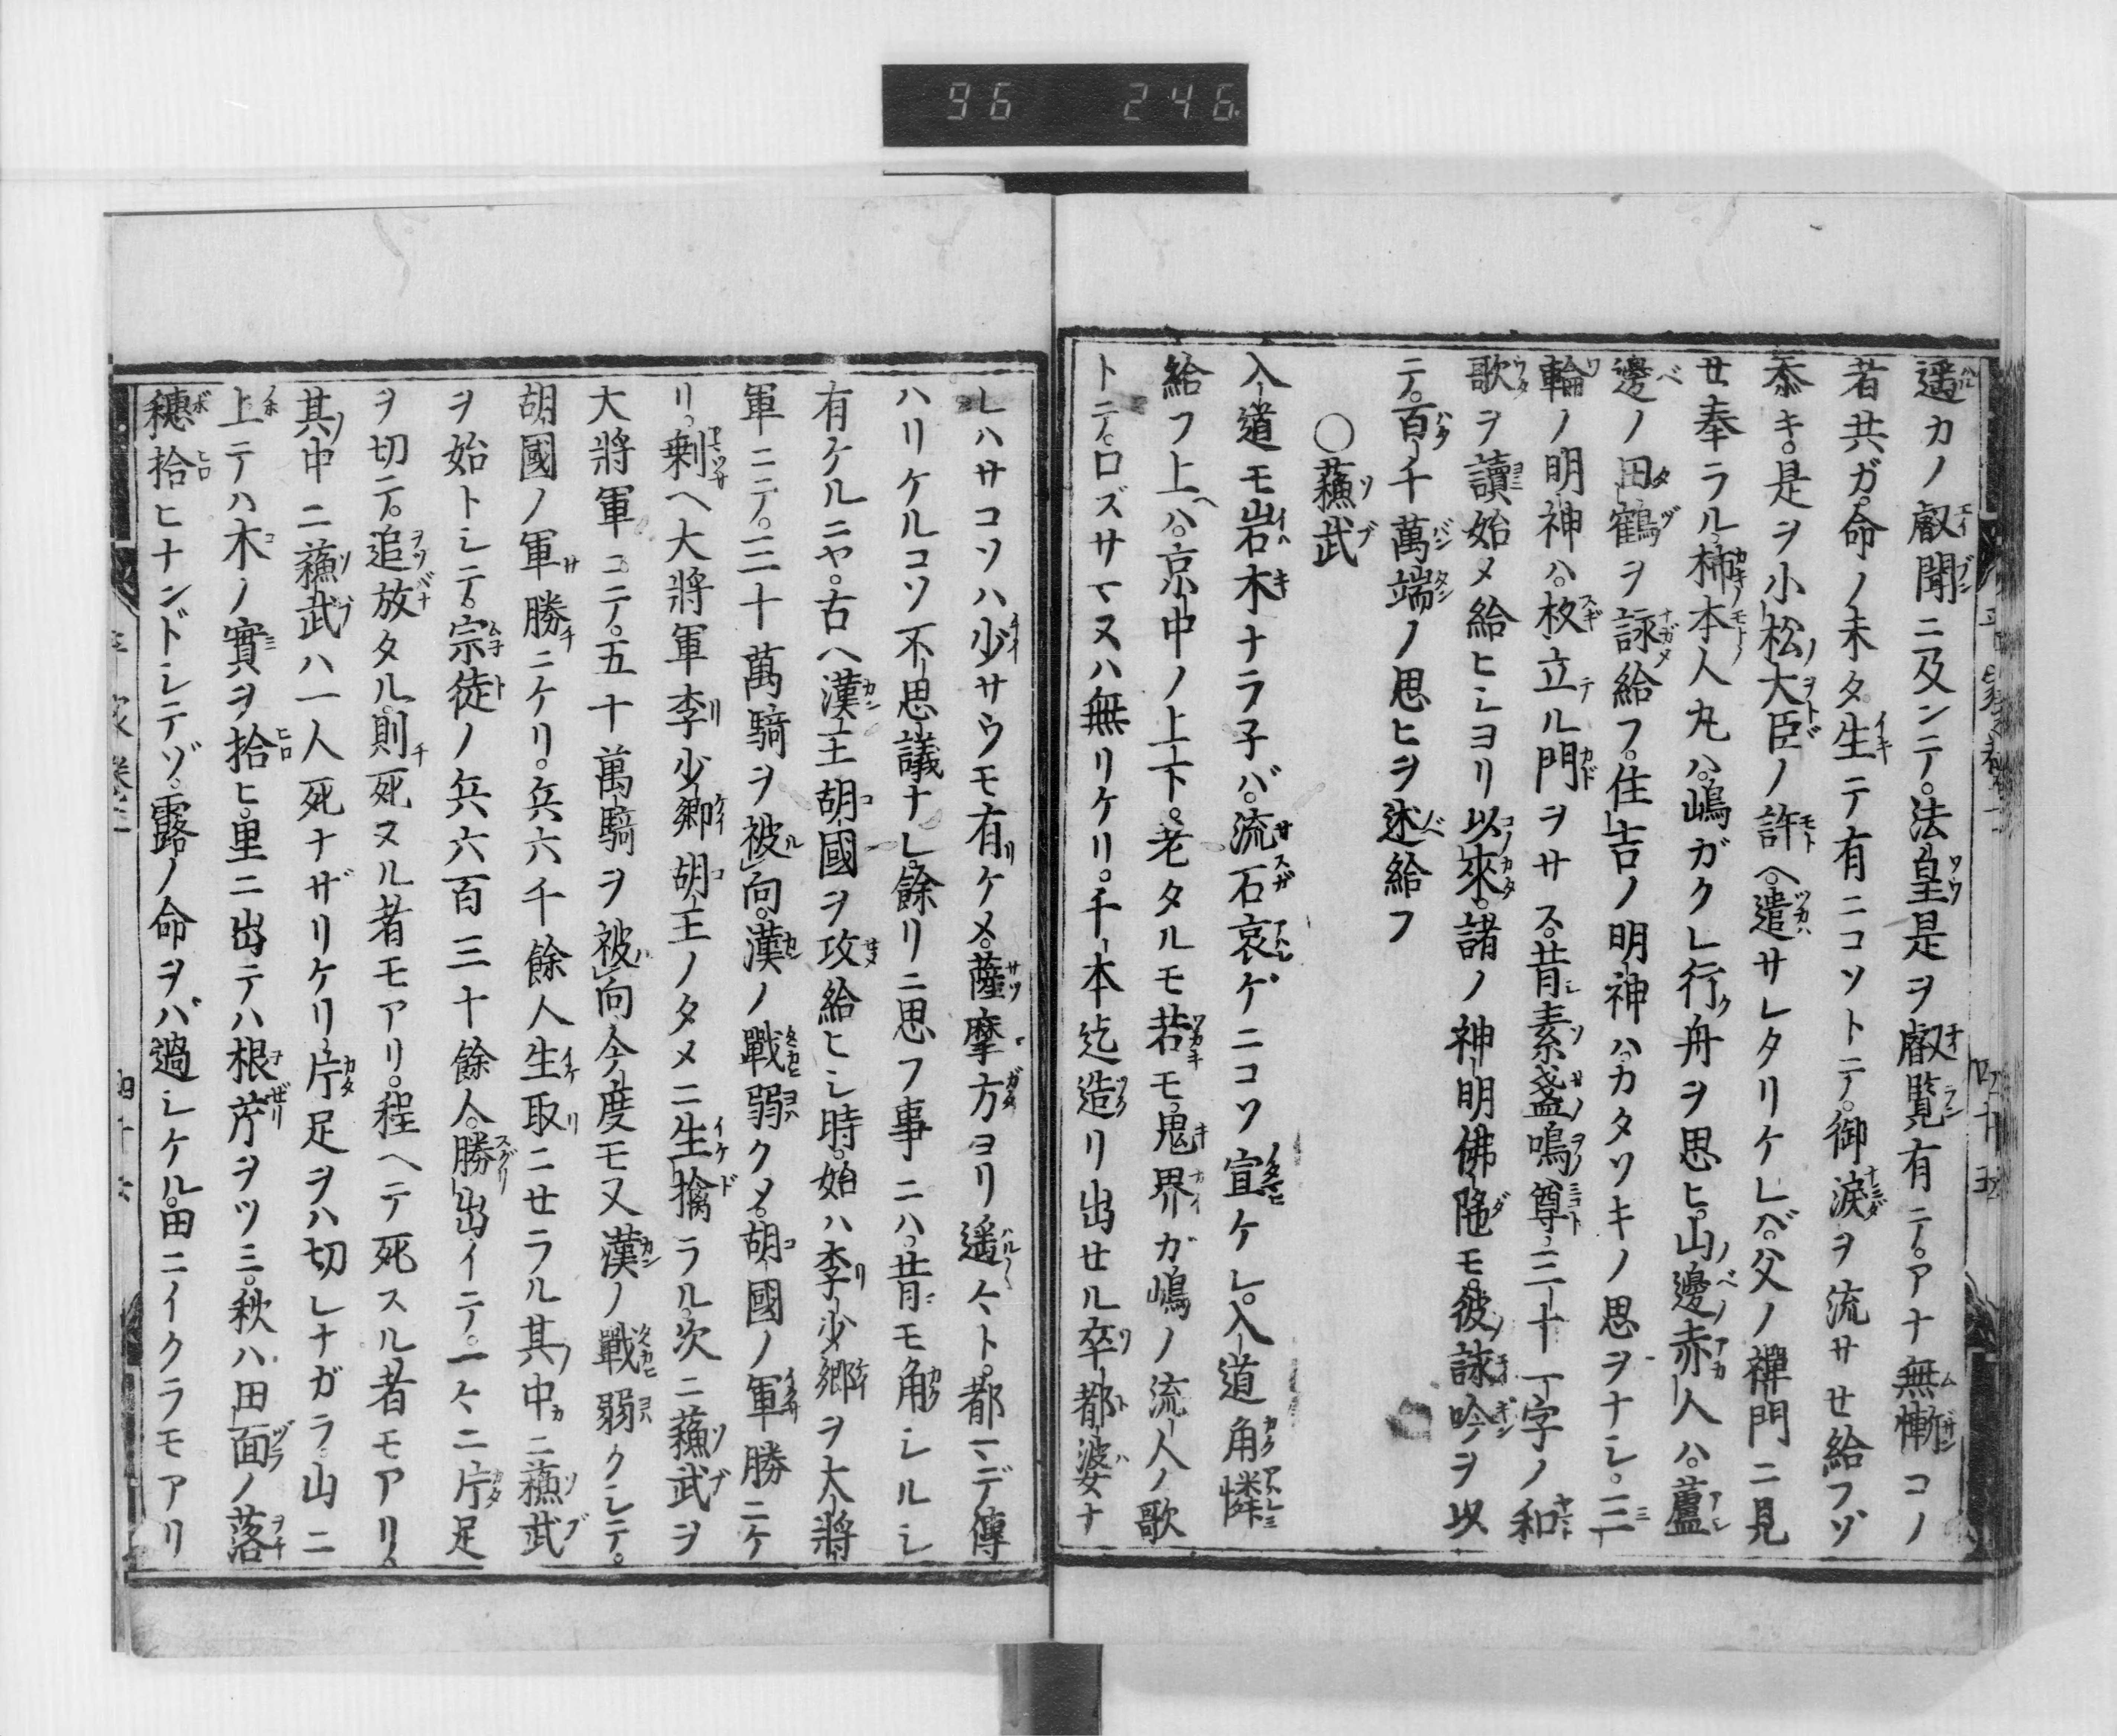 96 246
遥カノ叡聞ニ及ンテ。法皇是ヲ叡覧有テ。アナ無慚コノ
者共ガ。命ノ未タ生テ有ニコソトテ。御涙ヲ流サセ給フゾ
忝キ。是ヲ小松大臣ノ許ヘ。遣サレタリケレバ。父ノ禪門ニ見
セ奉ラル。柿本人丸ハ。嶋ガクレ行ク舟ヲ思ヒ。山邊赤人ハ。蘆
邊ノ田鶴ヲ詠給フ。住吉ノ明神ハ。カタソキノ思ヲナシ。三
輪ノ明神ハ。杉立ル門ヲサス。昔素盞嗚尊。三十一字ノ和
歌ヲ讀始メ給ヒシヨリ以來。諸ノ神明佛陁モ。彼詠吟ヲ以
テ。百千萬端ノ思ヒヲ述給フ
○蘓武
入道モ岩木ナラ子バ。流石哀ゲニコソ宣ケレ。入道角憐
給フ上ハ。京中ノ上下。老タルモ若モ。鬼界ガ嶋ノ流人ノ歌
トテ。口ズサマヌハ無リケリ。千本迄造リ出セル卒都婆ナ
レハサコソハ少サウモ有ケメ。薩摩方ヨリ遥々ト。都マデ傳
ハリケルコソ不思議ナレ。餘リニ思フ事ニハ。昔モ角シルシ
有ケルニヤ。古ヘ漢王胡國ヲ攻給ヒシ時。始ハ李少卿ヲ大將
軍ニテ。三十萬騎ヲ被向。漢ノ戰弱クメ。胡國ノ軍勝ニケ
リ。剰ヘ大將軍李少卿胡王ノタメニ生擒ラル。次ニ蘓武ヲ
大將軍ニテ。五十萬騎ヲ被向今度モ又漢ノ戰弱クシテ。
胡國ノ軍勝ニケリ。兵六千餘人生取ニセラル其中ニ蘓武
ヲ始トシテ。宗徒ノ兵六百三十餘人。勝出イテ。一々ニ片足
ヲ切テ。追放タル。則死ヌル者モアリ。程ヘテ死スル者モアリ。
其中ニ蘓武ハ一人死ナザリケリ。片足ヲハ切レナガラ。山ニ
上テハ木ノ實ヲ拾ヒ。里ニ出テハ根芹ヲツミ。秋ハ田面ノ落
穗拾ヒナンドシテゾ。露ノ命ヲバ過シケル。田ニイクラモアリ